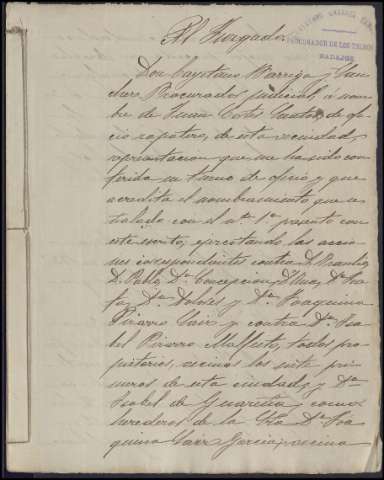 Al Juzgado.
PROCURADOR DE LOS TRIBUN
BADAJOZ
Don Cayetano Barriga y San
chez Procurador judicial, á nom
bre de Juan Cotes Castos de ofi
cio zapatero, de esta vecindad,
representacion que me ha sido con
ferida en turno de oficio y que
acredita el nombramiento que se
ñalado con el nº 1º presento con
este escrito, ejercitando las accio
nes correspondientes contra D. Ramon,
D. Pablo, Dª Concepcion, Dª Ana, Dª
Dª Dolores y Dª Joaquina
Pizarro y contra Dª Isa
bel Pizarro todos pro
pietarios, vecinos los siete pri
meros de esta ciudad, y Dª
Isabel de Guareña como
herederos de la Sra Dª Joa
quina Garcia, vecina